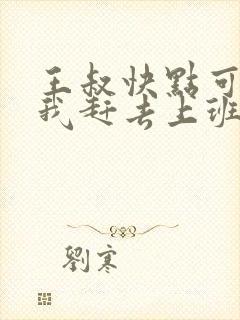 王叔快點可
我赶去上班
劉寒